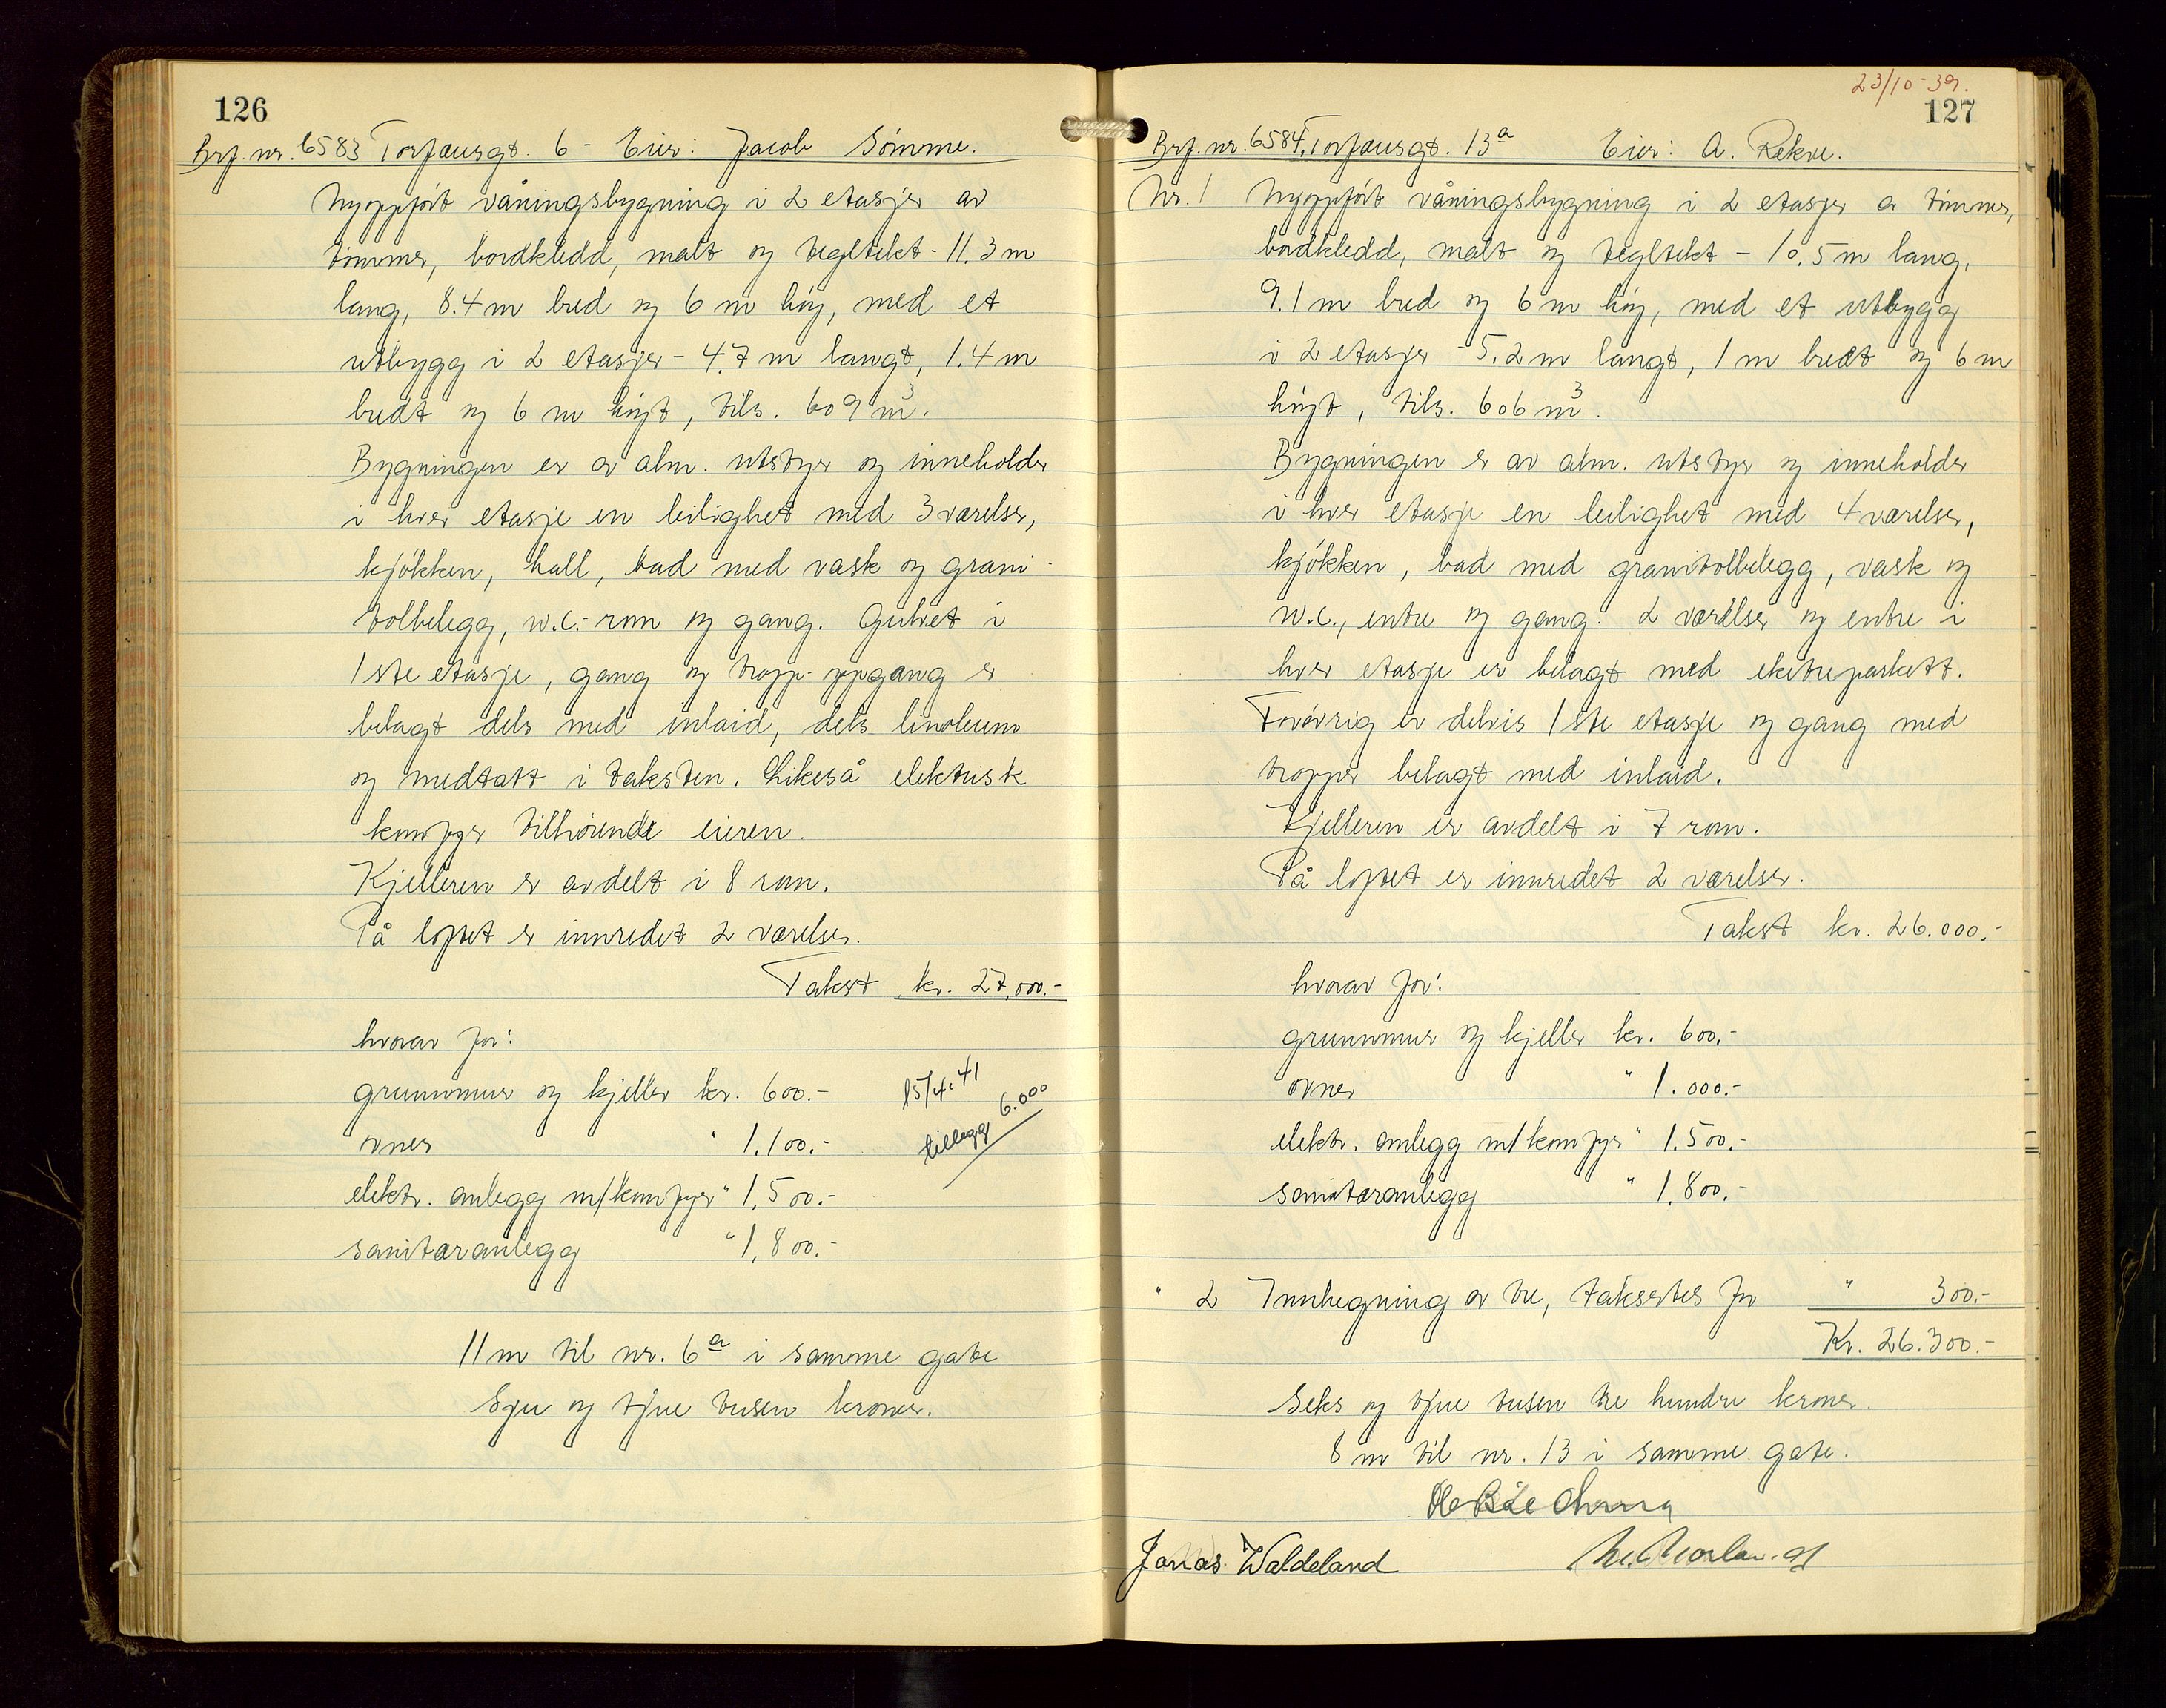 126
Brf. nr. 6583 Torfæusgt. 6 - Eier: Jacob Sömme.
Nyoppfört våningsbygning i 2 etasjer av
tömmer, bordkledd, malt og tegltekt - 11.3 m
lang, 8.4 m bred og 6 m høy, med et
utbygg i 2 etasjer - 4.7 m langt, 1.4 m
bredt og 6 m høyt, tils. 609 m³.
Bygningen er av alm. utstyr og inneholder
i hver etasje en leilighet med 3 værelser,
kjökken, hall, bad med vask og grani-
tolbelegg, w.c.-rom og gang. Gulvet i
1ste etasje, gang og trapp-oppgang er
belagt dels med inlaid, dels linoleum
og medtatt i taksten. Likeså elektrisk
komfyr tilhörende eieren.
Kjelleren er avdelt i 8 rom.
På loftet er innredet 2 værelser.
Takst kr. 27,000.-
hvorav for:
grunnmur og kjeller kr. 600.-
ovner " 1.100.-
elektr. anlegg m/komfyr " 1,500.-
sanitæranlegg " 1,800.-
15/4.41
tillegg 6.000
11 m til nr. 6a i samme gate
Sju og tjue tusen kroner.
23/10-39.
127
Brf. nr. 6584, Torfæusgt. 13a Eier: A. Rekve.
Nr. 1 Nyoppfört våningsbygning i 2 etasjer av tömmer,
bordkledd, malt og tegltekt - 10.5 m lang,
9.1 m bred og 6 m høy, med et utbygg
i 2 etasjer - 5.2 m langt, 1 m bredt og 6 m
høyt, tils. 606 m³.
Bygningen er av alm. utstyr og inneholder
i hver etasje en leilighet med 4 værelser,
kjökken, bad med granitolbelegg, vask og
w.c., entre og gang. 2 værelser og entre i
hver etasje er belagt med eketreparkett.
Forövrig er delvis 1ste etasje og gang med
trapper belagt med inlaid.
Kjelleren er avdelt i 7 rom.
På loftet er innredet 2 værelser.
Takst kr. 26.000.-
hvorav for:
grunnmur og kjeller kr. 600.-
ovner " 1.000.-
elektr. anlegg m/komfyr " 1.500.-
sanitæranlegg " 1.800.-
" 2 Innhegning av tre, taksertes for " 300.-
Kr. 26.300.-
Seks og tjue tusen tre hundre kroner.
8 m til nr. 13 i samme gate.
Jonas Waldeland